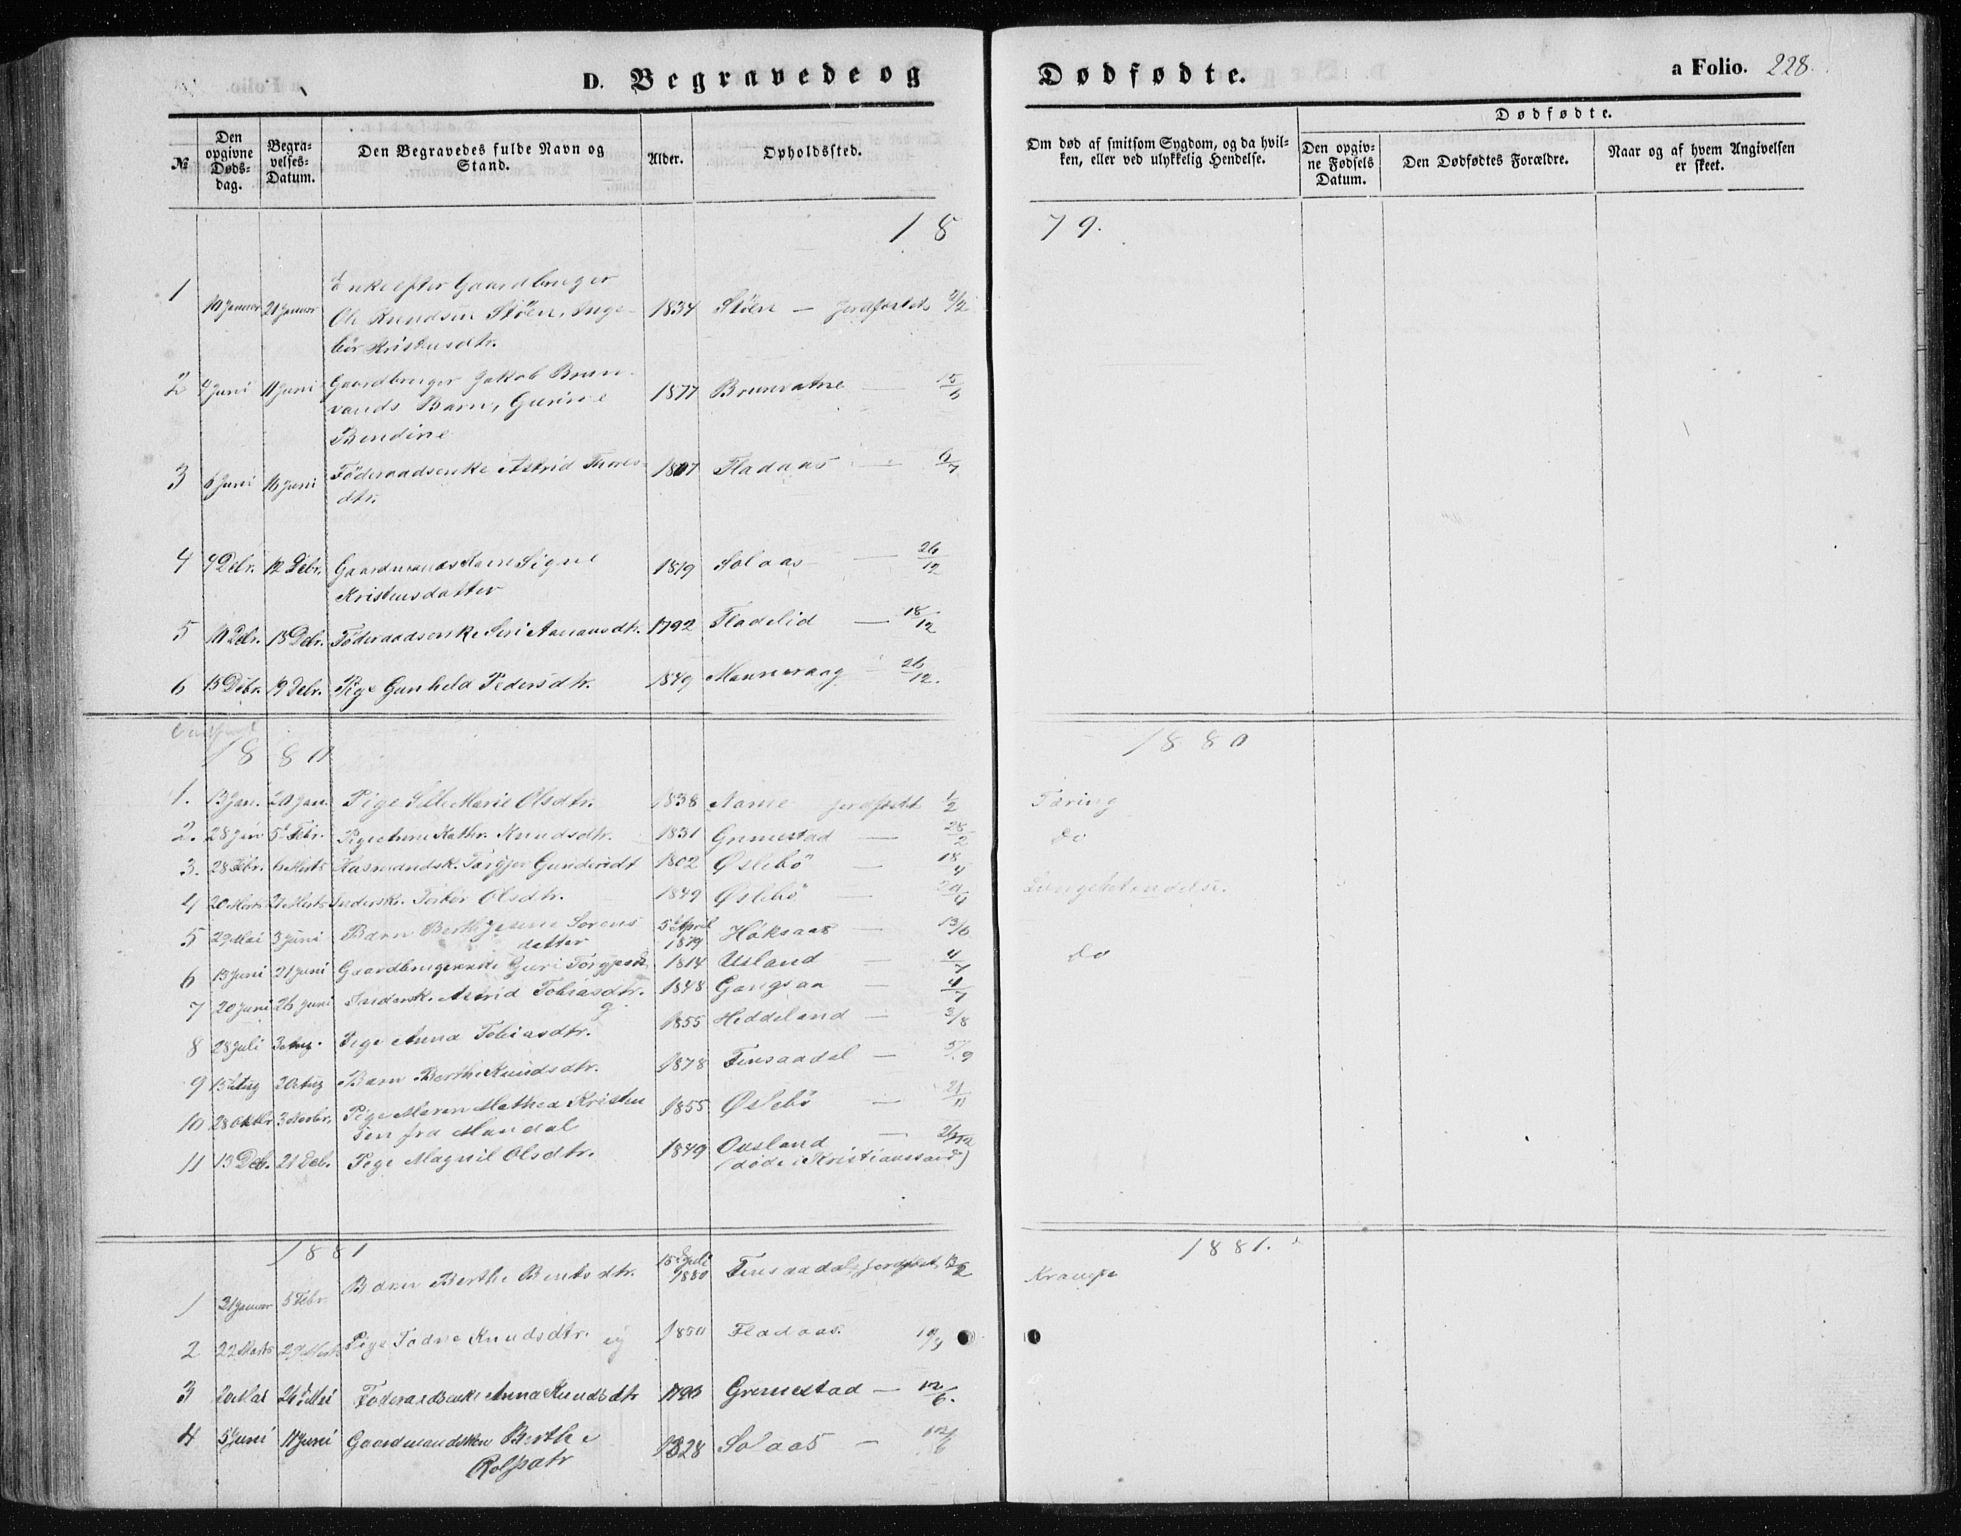 D. Begravede og Dødfødte. a Folio. 228.
№ Den opgivne Døds-dag. Begra-velses-Datum. Den Begravedes fulde Navn og Stand. Alder. Opholdssted. Om død af smitsom Sygdom, og da hvil-ken, eller ved ulykkelig Hendelse. Dødfødte. Den opgiv-ne Fødsels Datum. Den Dødfødtes Forældre. Naar og af hvem Angivelsen er skeet.
18 79.
1 Enke efter Gaardbruger
10 Januar 21 Januar Ole Knudsen Stöen, Inge- 1834 Stöen — jordfæstet 2/2
bör Kristensdtr.
2 4 Juni 11 Juni Gaardbruger Jakob Brun- 1877 Brunvatne — 15/6
vands Barn, Gurine
Bendine
3 6 Juni 16 Juni Föderaadsenke Astrid Thores- 1807 Fladaas — 6/7
dtr.
4 4 Debr. 12 Debr. Gaardmandskone Signe 1819 Solaas — 26/12
Kristensdatter
5 10 Debr. 13 Debr. Föderaadsenke Siri Aanansdtr. 1792 Fladelid — 18/12
6 15 Debr. 19 Debr. Pige Gunheld Pedersdtr. 1849 Mannevaag — 26/12.
1880 1880
1. 13 Jan. 20 Jan. Pige Sille Marie Olsdtr. 1838 Nome jordfæstet 1/2 Tæring
2. 28 Jan 5 Febr. Pige Anne Kathr. Knudsdtr. 1831 Grimestad — 28/2 do
3. 28 Febr. 6 Marts Husmandsk. Torgjer Gundersdt 1802 Öslebö — 18/4
4 20 Marts 27 Marts Inderskr. Torbör Olsdtr. 1849 Öslebö — 20/4 Lungebetændelse.
5 29 Mai 3 Juni Barn Berthe Jesine Sorens 5 April Höksaas — 13/6
datter 1879
6 13 Juni 21 Juni Gaardbrugerenke Guri Torgjesdtr 1814 Usland — 4/7 do
7 20 Juni 26 Juni Indersk. Astrid Tobiasdtr. 1848 Gangsaa — 4/7
8 28 Juli 3 Aug. Pige Anna Tobiasdtr. 1855 Heddeland — 3/8
9 15 Aug 20 Aug Barn Berthe Knudsdtr. 1878 Finsaadal — 5/9
10 28 Oktbr 3 Novbr. Pige Maren Mathea Kristen 1855 Öslebö — 21/11
sen fra Mandal
11 13 Deb. 21 Deb. Pige Magnil Olsdtr. 1849 Ousland — 26/12
(döde i Kristianssand)
1881 1881.
1 31 Januar 5 Febr. Barn Berthe Bentsdtr. 15 Juli 1880 Finsaadal, jordfæstet, 13/2 Krampe
2 22 Marts 29 Marts Pige Todne Knudsdtr. 1850 Fladaas.
3 20 Mai 26 Mai Föderaadsenke Anna Knudsdtr 1793 Gremestad — 12/6.
4 5 Juni 11 Juni Gaardmandskone Berthe 1828 Solaas — 12/6
Rolfsdtr